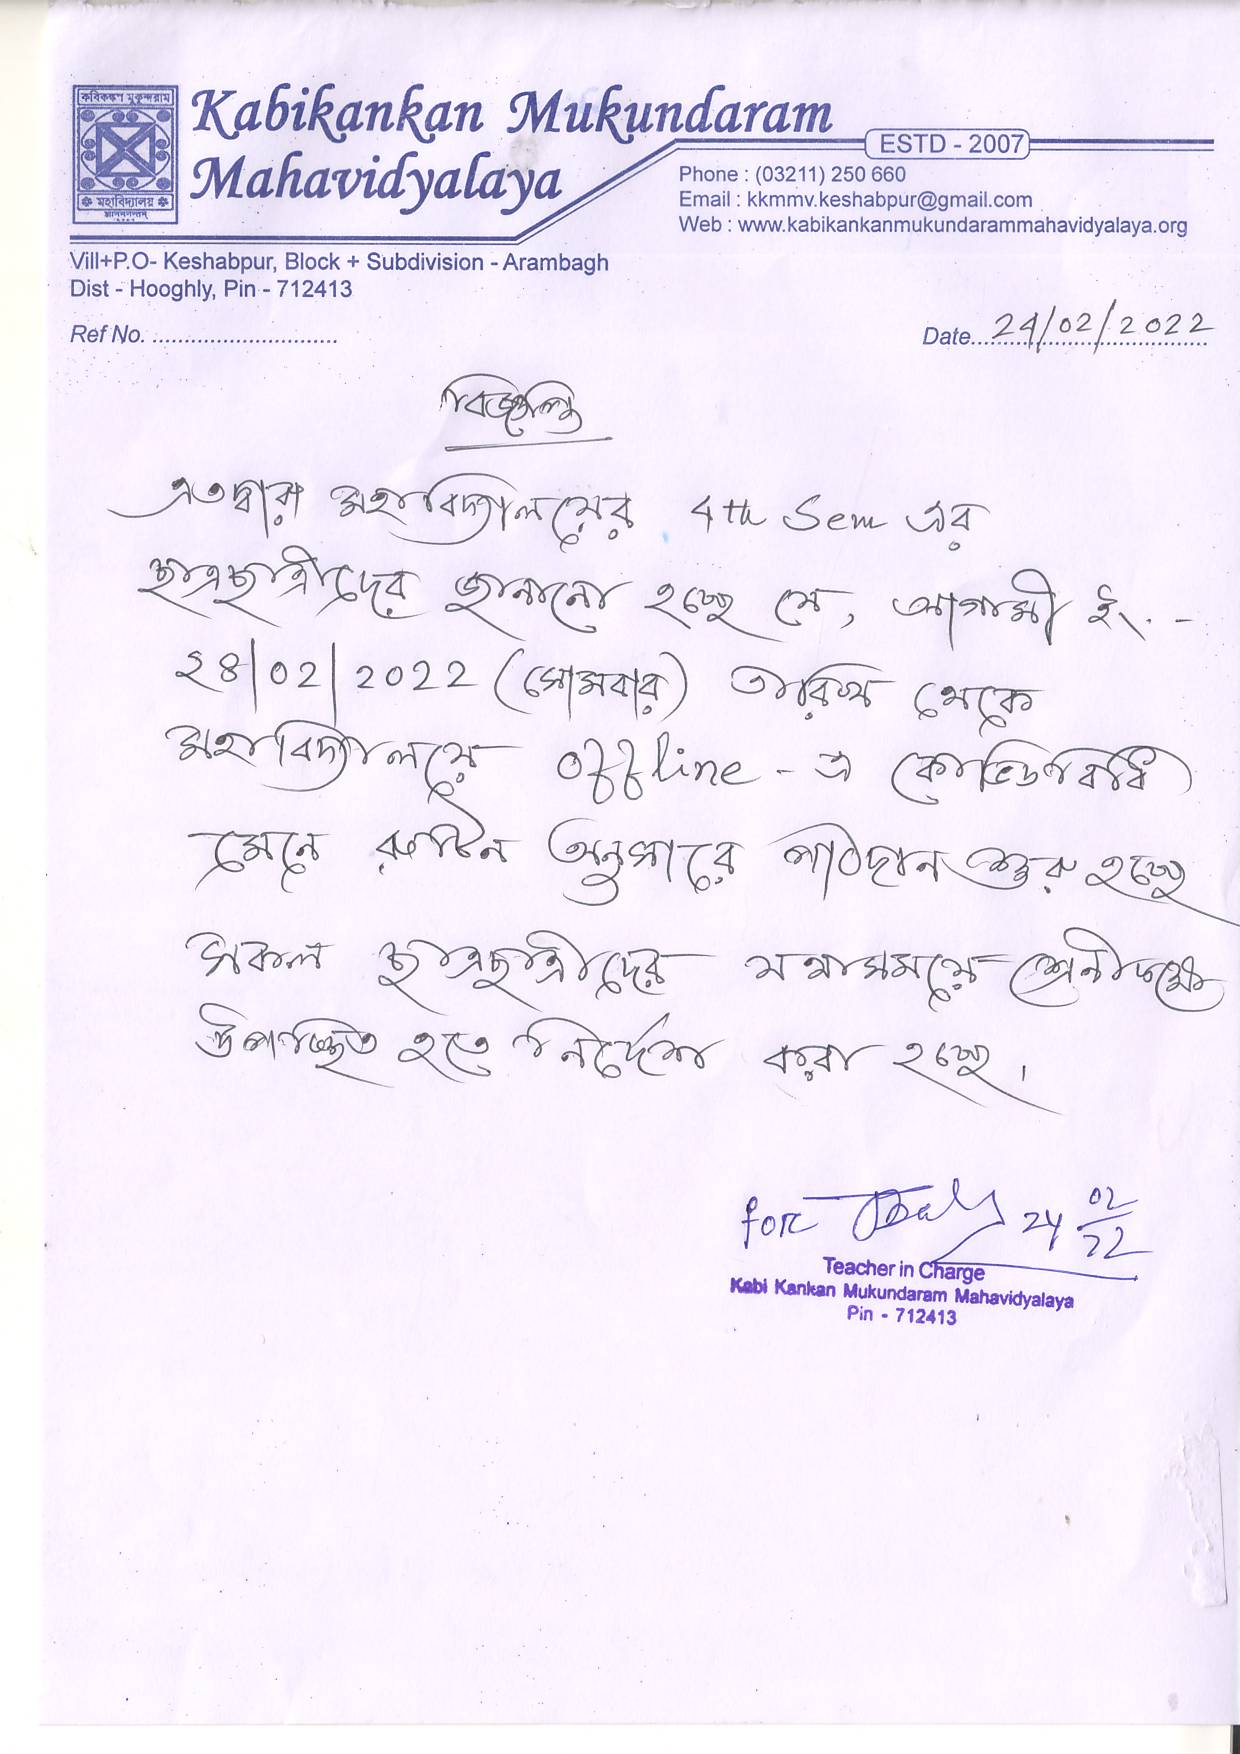 কবিকঙ্কণ মুকুন্দরাম
মহাবিদ্যালয়
Kabikankan Mukundaram
Mahavidyalaya
ESTD - 2007
Phone : (03211) 250 660
Email : kkmmv.keshabpur@gmail.com
Web : www.kabikankanmukundarammahavidyalaya.org
Vill+P.O- Keshabpur, Block + Subdivision - Arambagh
Dist - Hooghly, Pin - 712413
Ref No. ..............................
Date...24/02/2022
বিজ্ঞপ্তি
এতদ্বারা মহাবিদ্যালয়ের 4th Sem এর
ছাত্রছাত্রীদের জানানো হচ্ছে যে, আগামী ইং. -
২৪/02/2022 (সোমবার) তারিখ থেকে
মহাবিদ্যালয়ে offline - এ কোভিডবিধি
মেনে রুটিন অনুসারে পাঠদান শুরু হচ্ছে
সকল ছাত্রছাত্রীদের যথাসময়ে শ্রেনীকক্ষে
উপস্থিত হতে নির্দেশ করা হচ্ছে।
for 24 02/22
Teacher in Charge
Kabi Kankan Mukundaram Mahavidyalaya
Pin - 712413